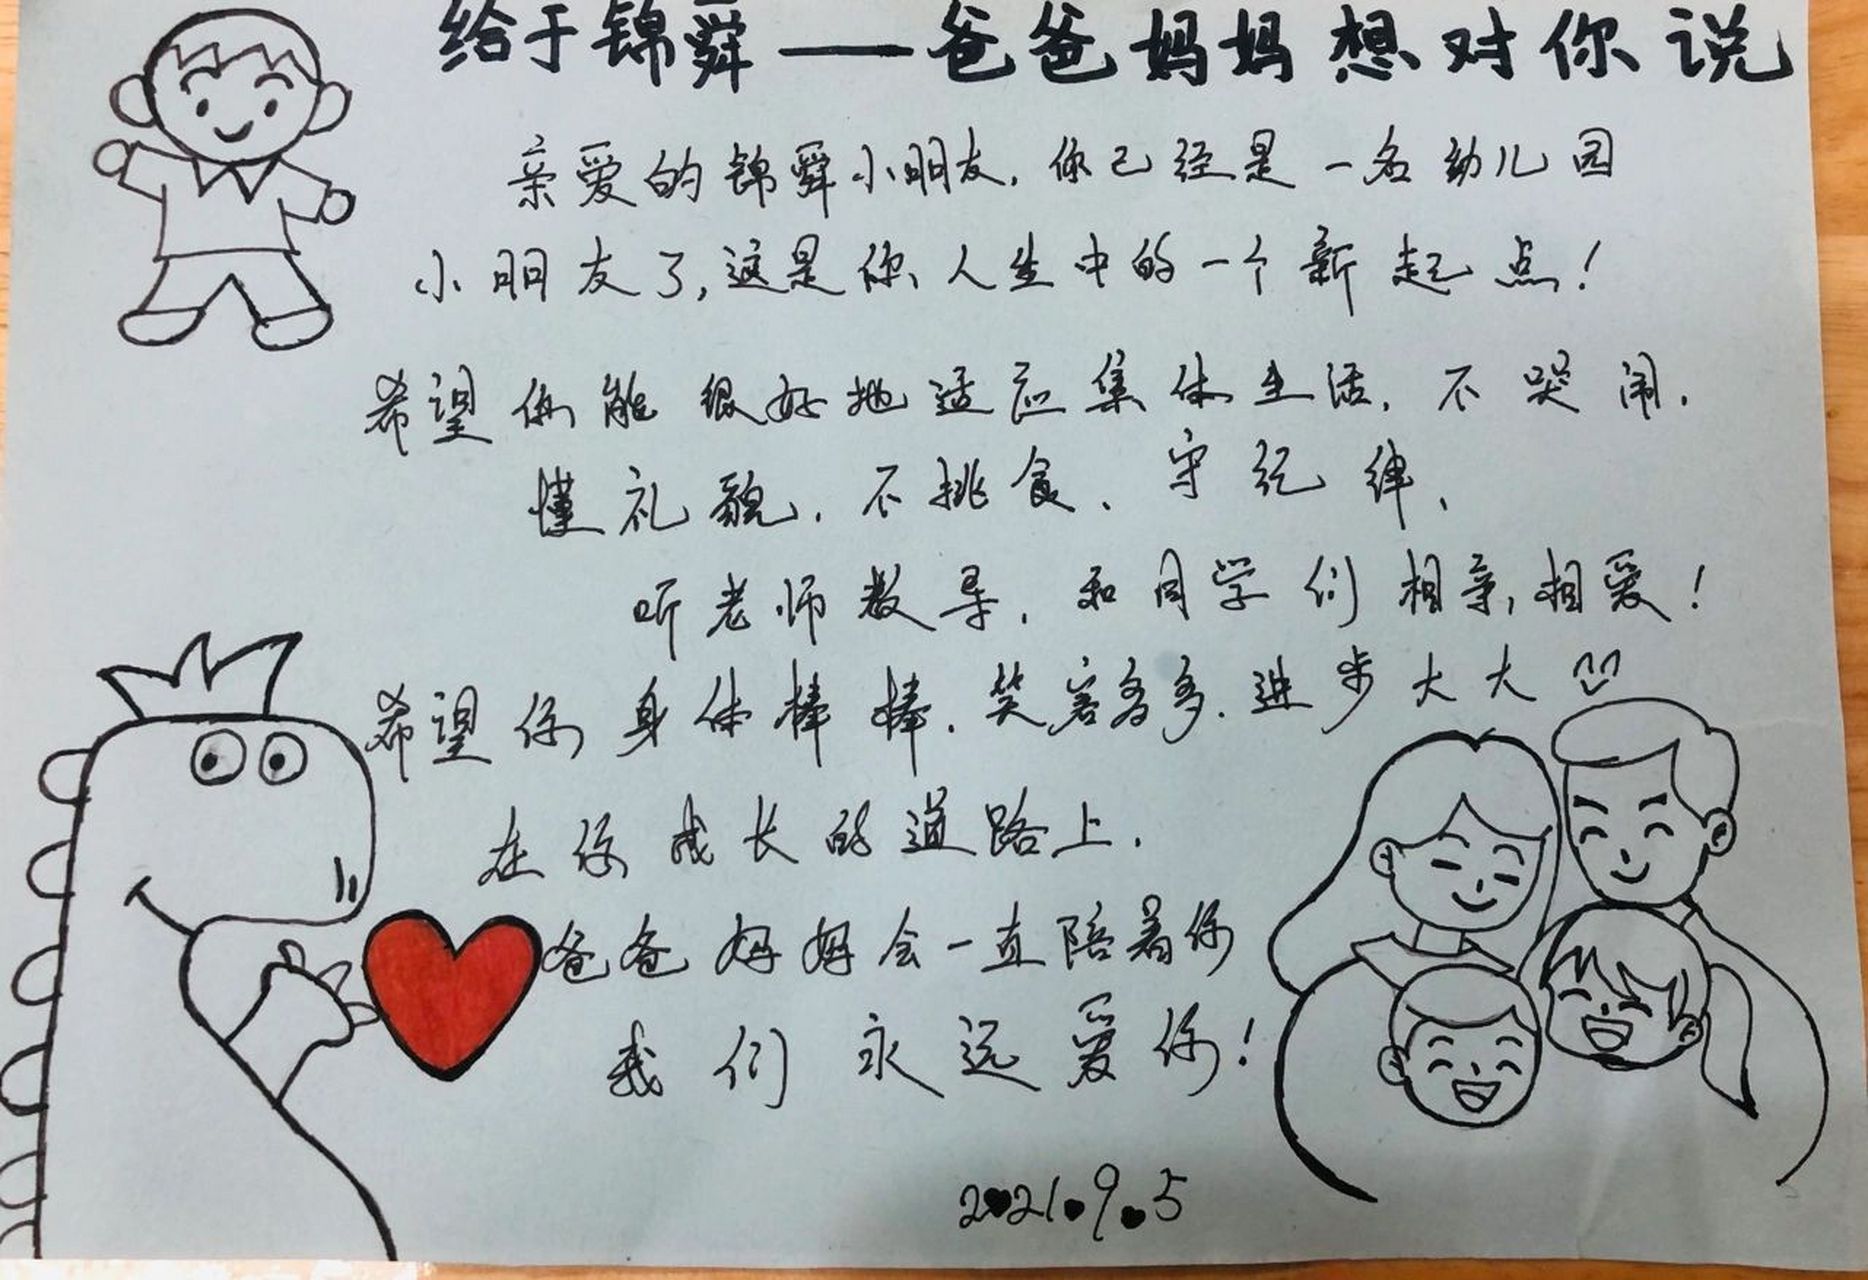 给于锦舜——爸爸妈妈想对你说
亲爱的锦舜小朋友,你已经是一名幼儿园
小朋友了,这是你人生中的一个新起点!
希望你能很好地适应集体生活,不哭闹,
懂礼貌,不挑食,守纪律,
听老师教导,和同学们相亲相爱!
希望你身体棒棒,笑容多多,进步大大
在你成长的道路上,
爸爸妈妈会一直陪着你
我们永远爱你!
2021.9.5